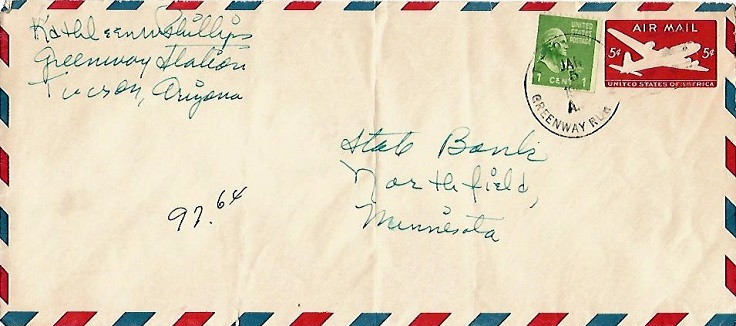 Kathleen W Phillips
Greenway Station
Tucson, Arizona
UNITED
STATES
POSTAGE
1 CENT 1
JAN
5
A.
GREENWAY RUR.
AIR MAIL
5¢ 5¢
UNITED STATES OF AMERICA
State Bank
Northfield,
Minnesota
97.64